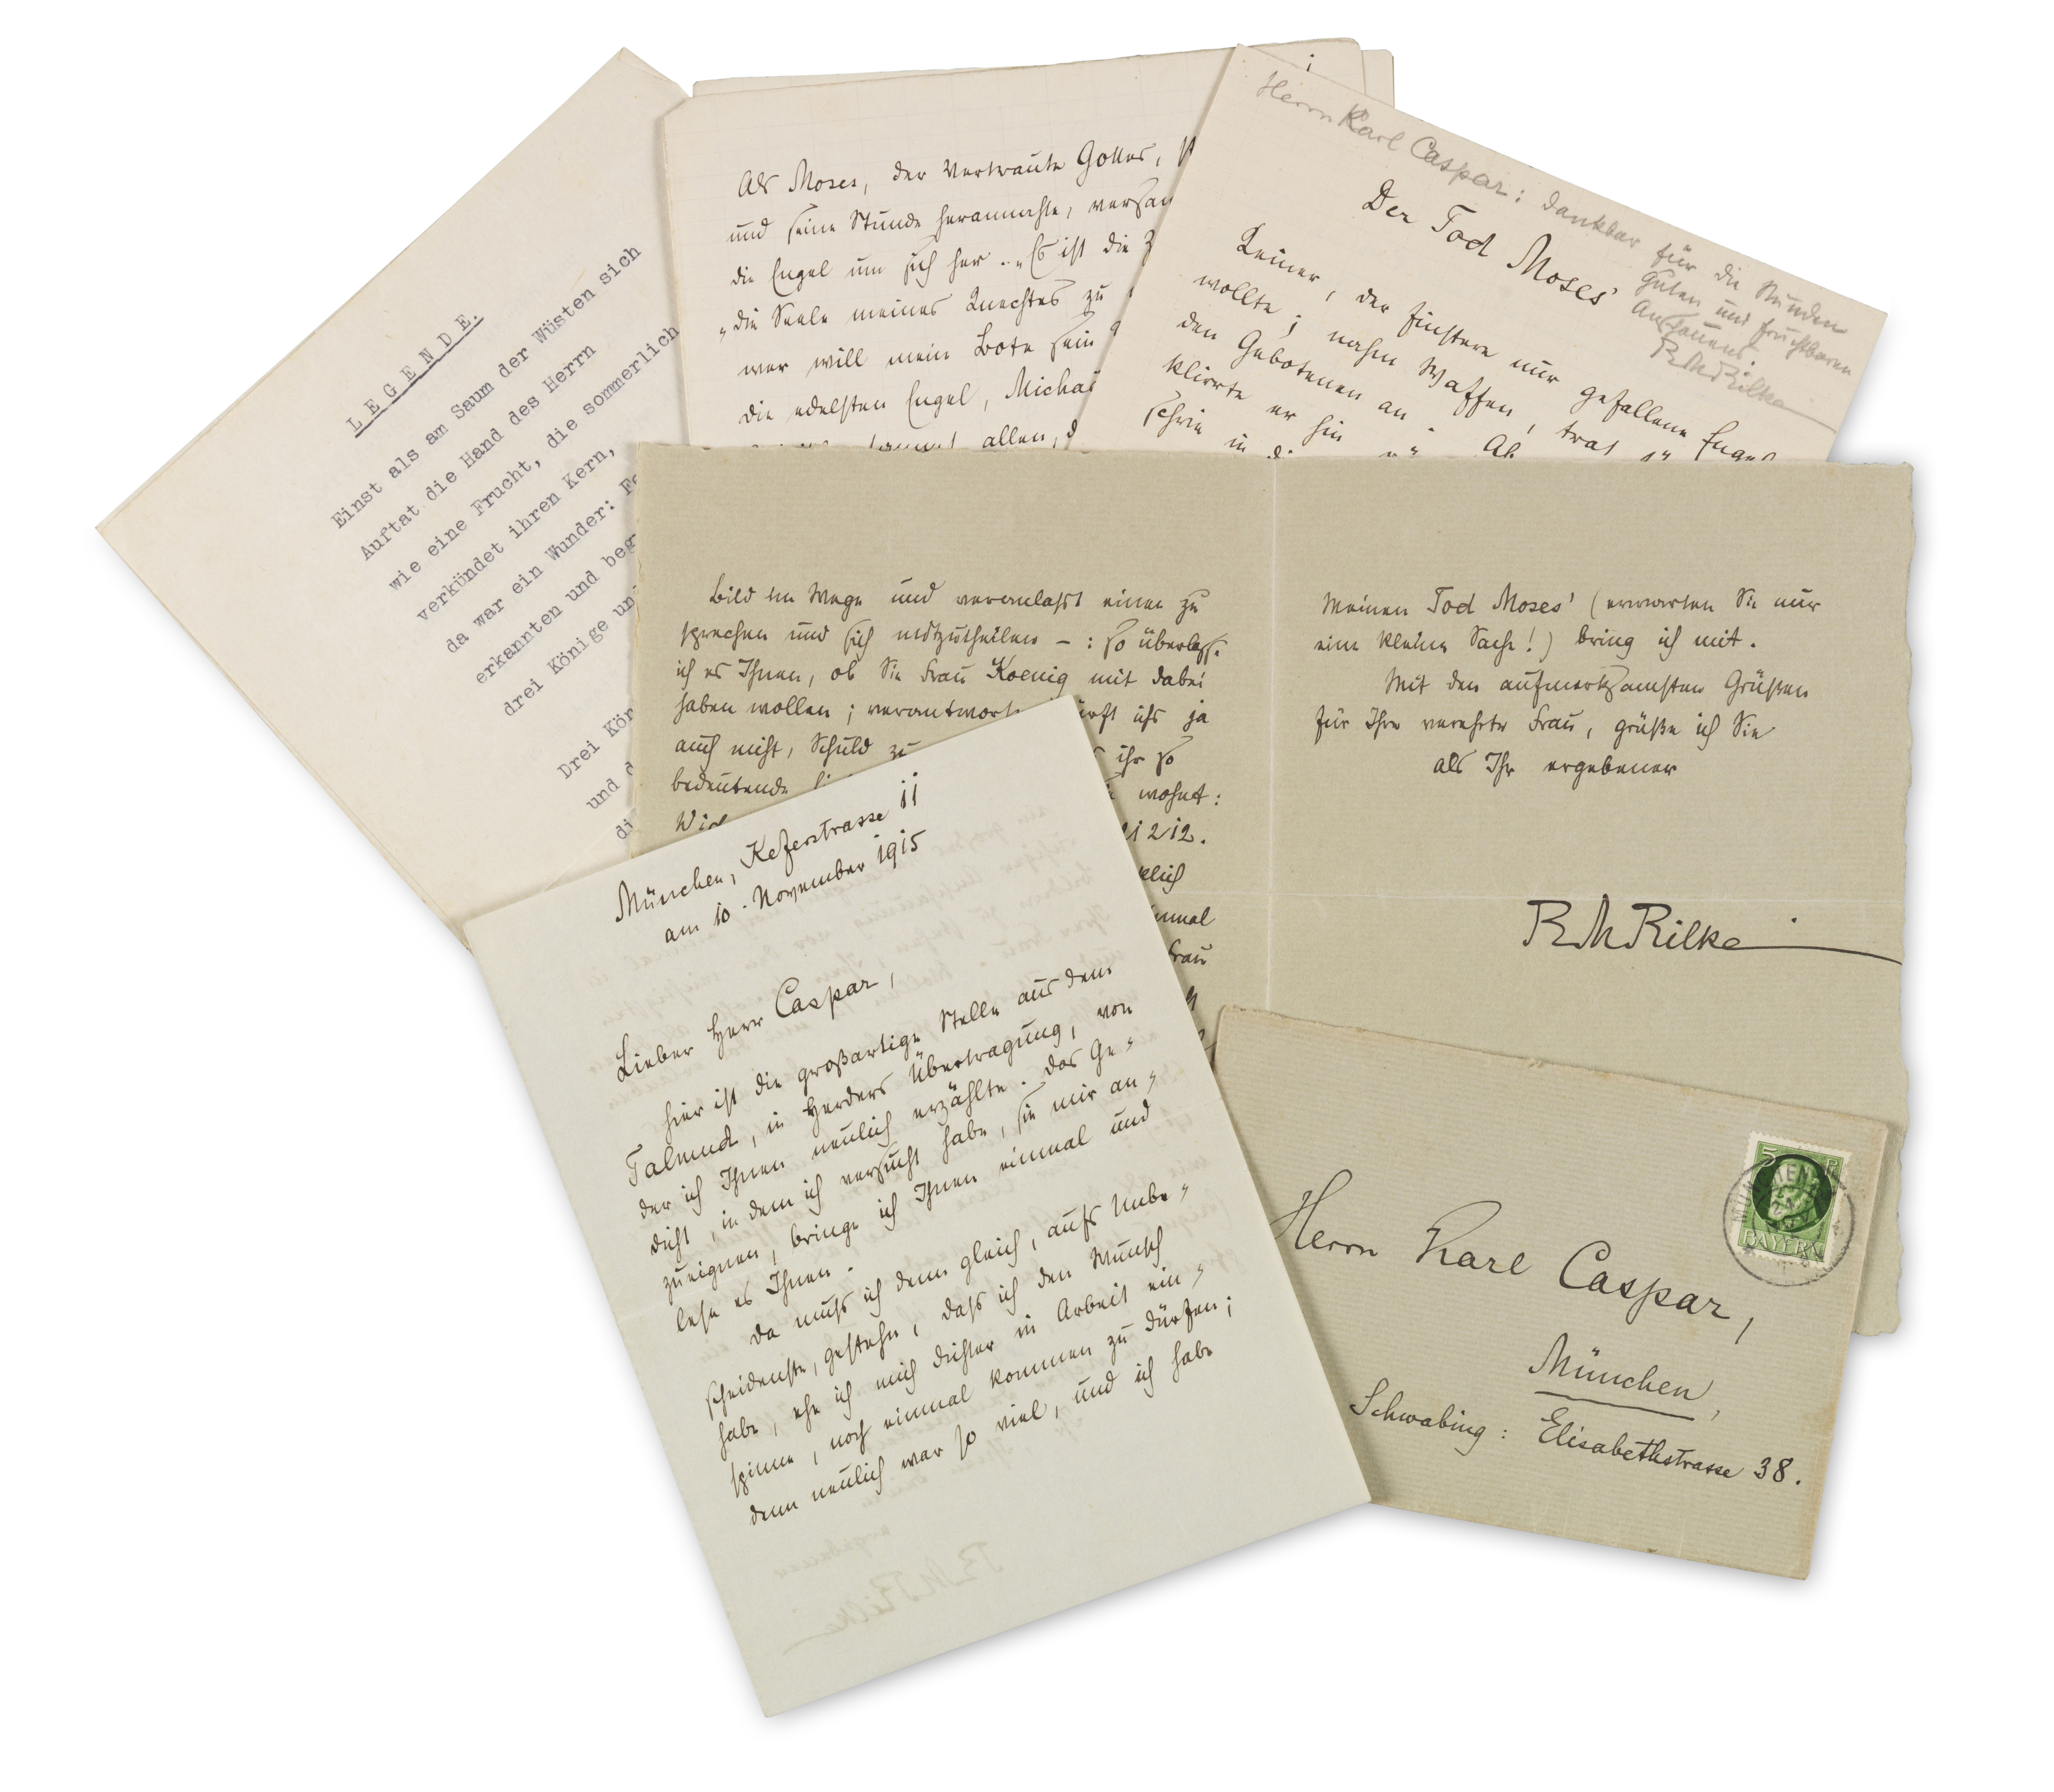 LEGENDE.
Einst als am Saum der Wüsten sich
Auftat die Hand des Herrn
wie eine Frucht, die sommerlich
verkündet ihren Kern,
da war ein Wunder: Fe
erkannten und beg
drei Könige un
Drei Kön
und d
di
Als Moses, der Vertraute Gottes,
und seine Stunde herannahte, versam
die Engel um sich her. „Es ist die Z
„die Seele meines Knechtes zu
wer will mein Bote sein
die edelsten Engel, Michae
allen, d
Herrn Karl Caspar: dankbar für die Stunden
guten und fruchtbaren
Anschauens.
RMRilke
Der Tod Moses'
Keiner, der finstere nur gefallene Engel
wollte; nahm Waffen, trat
den Gebotenen an. Ab
klirrte er hin
schrie in
Bild im Wege und veranlasst einen zu
sprechen und sich mitzutheilen –: so überlasse
ich es Ihnen, ob Sie Frau Koenig mit dabei
haben wollen; verantwort ürft ichs ja
auch nicht, Schuld zu ihr so
bedeutende wohnt:
Wid 1212.
klich
inmal
Frau
Meinen Tod Moses' (erwarten Sie nur
eine kleine Sache!) bring ich mit.
Mit den aufmerksamsten Grüßen
für Ihre verehrte Frau, grüße ich Sie
als Ihr ergebener
RMRilke
München, Keferstrasse 11
am 10. November 1915
Lieber Herr Caspar,
hier ist die großartige Stelle aus dem
Talmud, in Herders Übertragung, von
der ich Ihnen neulich erzählte. Das Ge-
dicht, in dem ich versucht habe, sie mir an-
zueignen, bringe ich Ihnen einmal und
lese es Ihnen.
Da muß ich denn gleich, aufs Unbe-
scheidenste, gestehn, daß ich den Wunsch
habe, ehe ich mich dichter in Arbeit ein-
spinne, noch einmal kommen zu dürfen;
denn neulich war so viel, und ich habe
5
BAYERN
MÜNCHEN
Herrn Karl Caspar,
München,
Schwabing: Elisabethstrasse 38.